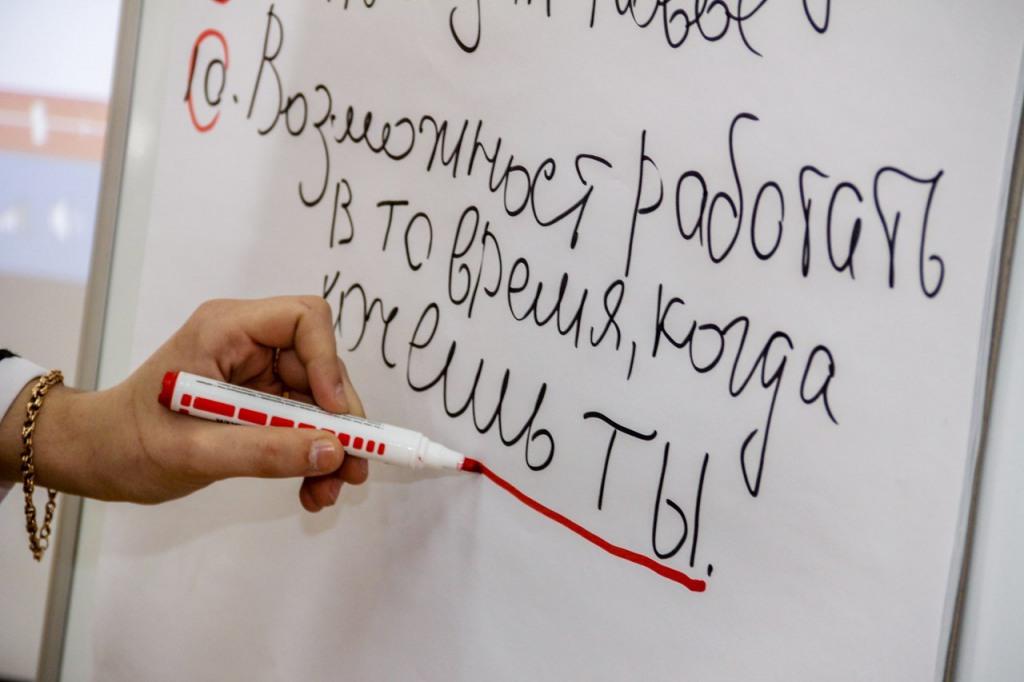 10. Возможност работать
в то время, когда
хочешь ты.